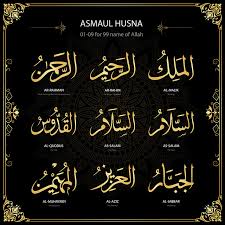 ASMAUL HUSNA
01-09 for 99 name of Allah
الرحمن الرحيم الملك
AR-RAHMAN AR-RAHIM AL-MALIK
القدوس السلام السلام
AL-QUDDUS AS-SALAM AS-SALAM
المهيمن العزيز الجبار
AL-MUHAYMIN AL-AZIZ AL-JABBAR